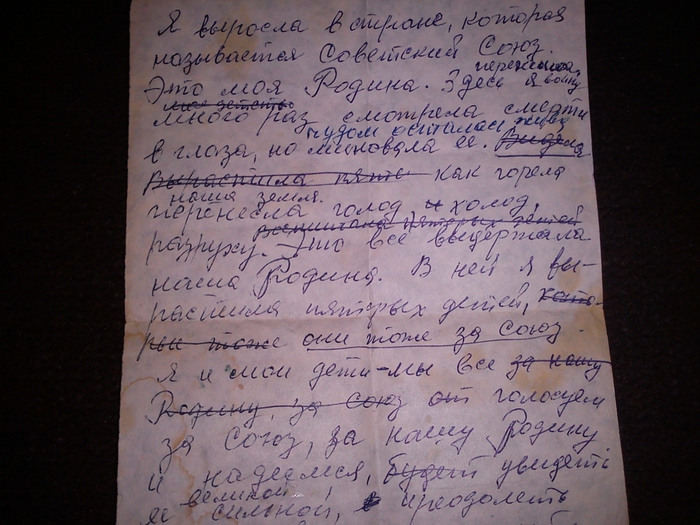 Я выросла в стране, которая
называется Советский Союз.
пережила
Это моя Родина. Здесь я войну,
мое детство
много раз смотрела смерти
чудом осталась жива
в глаза, но миновала ее. Видела
вырастила пять как горела
наша земля.
перенесла голод и холод,
воспитала пятерых детей
разруху. Это все выдержала
наша Родина. В ней я вы-
растила пятерых детей, кото-
рые тоже они тоже за Союз.
Я и мои дети-мы все за нашу
Родину, за Союз от голосуем
за Союз, за нашу Родину
и надеемся, будет увидеть
великой
ее сильной, в преодолеть